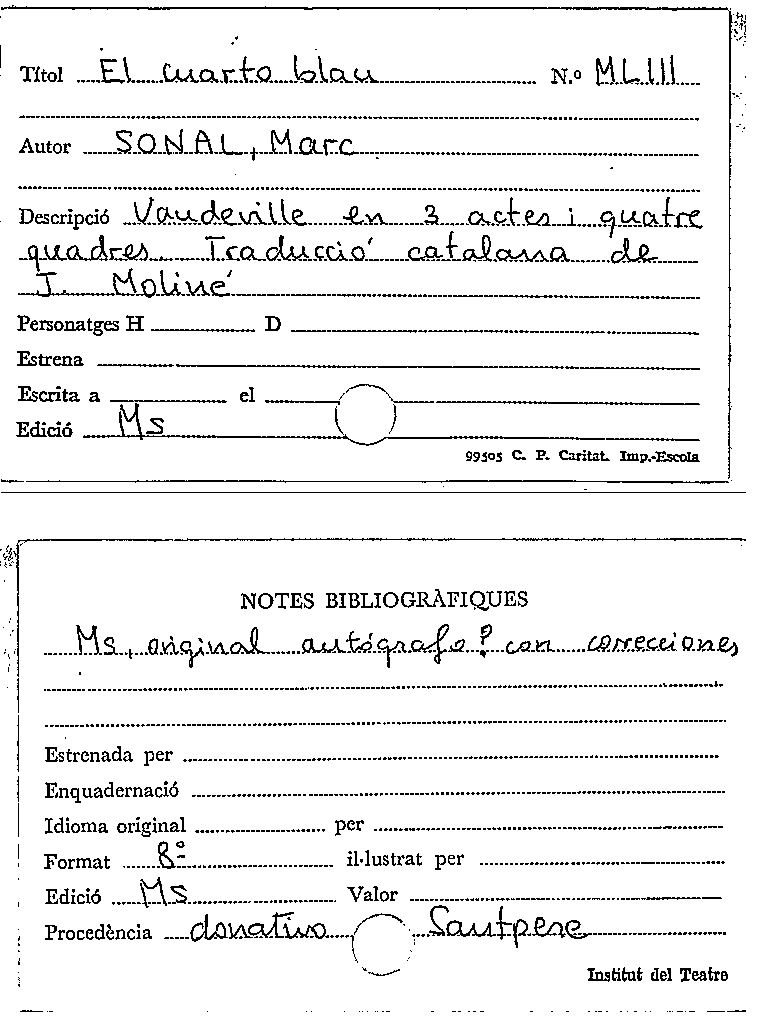 Títol El cuarto blau N.º MLIII
Autor SONAL, Marc
Descripció Vaudeville en 3 actes i quatre
quadres. Traducció catalana de
J. Moliné
Personatges H D
Estrena
Escrita a el
Edició Ms
99505 C. P. Caritat. Imp.-Escola
NOTES BIBLIOGRÀFIQUES
Ms, original autógrafo? con correcciones
Estrenada per
Enquadernació
Idioma original per
Format 8º il·lustrat per
Edició Ms Valor
Procedència donativo Santpere
Institut del Teatre